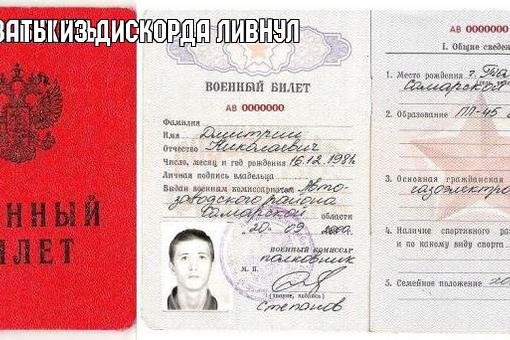 ВАТЫКИЗЬДИСКОРДА ЛИВНУЛ
ЕННЫЙ
ИЛЕТ
ВОЕННЫЙ БИЛЕТ
АВ 0000000
Фамилия
Имя Дмитрий
Отчество Николаевич
Число, месяц и год рождения 16.12.1981
Личная подпись владельца
Выдан военным комиссариатом Авто-
заводского района
Самарской области
20 09
ВОЕННЫЙ КОМИССАР
полковник
М. П.
(звание, подпись)
Степанов
АВ 0000000
I. Общие сведе
1. Место рождения г.
Самарской
2. Образование ПЛ-45
3. Основная гражданская
газоэлектро
4. Наличие спортивного раз
и по какому виду спорта
5. Семейное положение хо